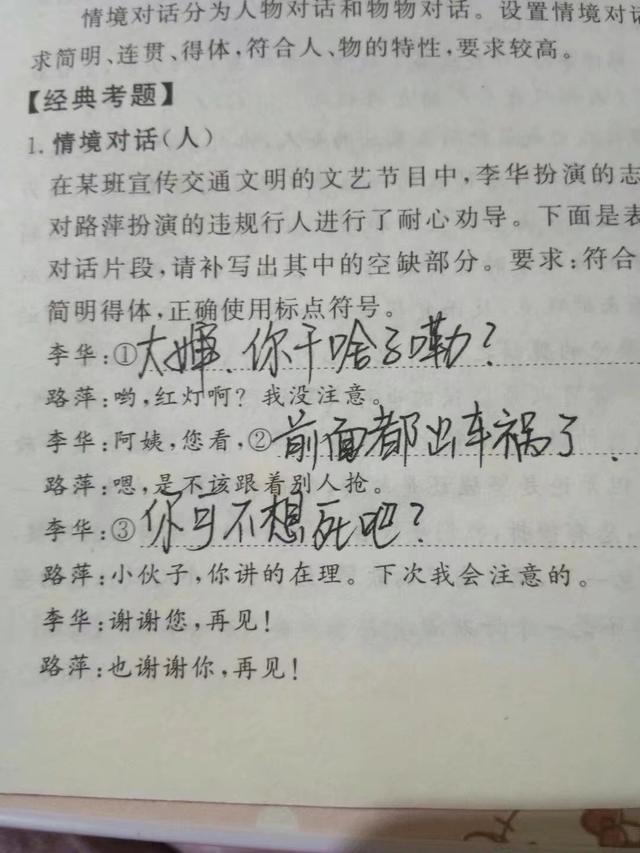 情境对话分为人物对话和物物对话。设置情境对话
求简明、连贯、得体,符合人、物的特性,要求较高。
【经典考题】
1. 情境对话(人)
在某班宣传交通文明的文艺节目中,李华扮演的志
对路萍扮演的违规行人进行了耐心劝导。下面是表
对话片段,请补写出其中的空缺部分。要求:符合
简明得体,正确使用标点符号。
李华:①大婶、你干啥子嘞?
路萍:哟,红灯啊?我没注意。
李华:阿姨,您看,②前面都出车祸了.
路萍:嗯,是不该跟着别人抢。
李华:③你可不想死吧?
路萍:小伙子,你讲的在理。下次我会注意的。
李华:谢谢您,再见!
路萍:也谢谢你,再见!